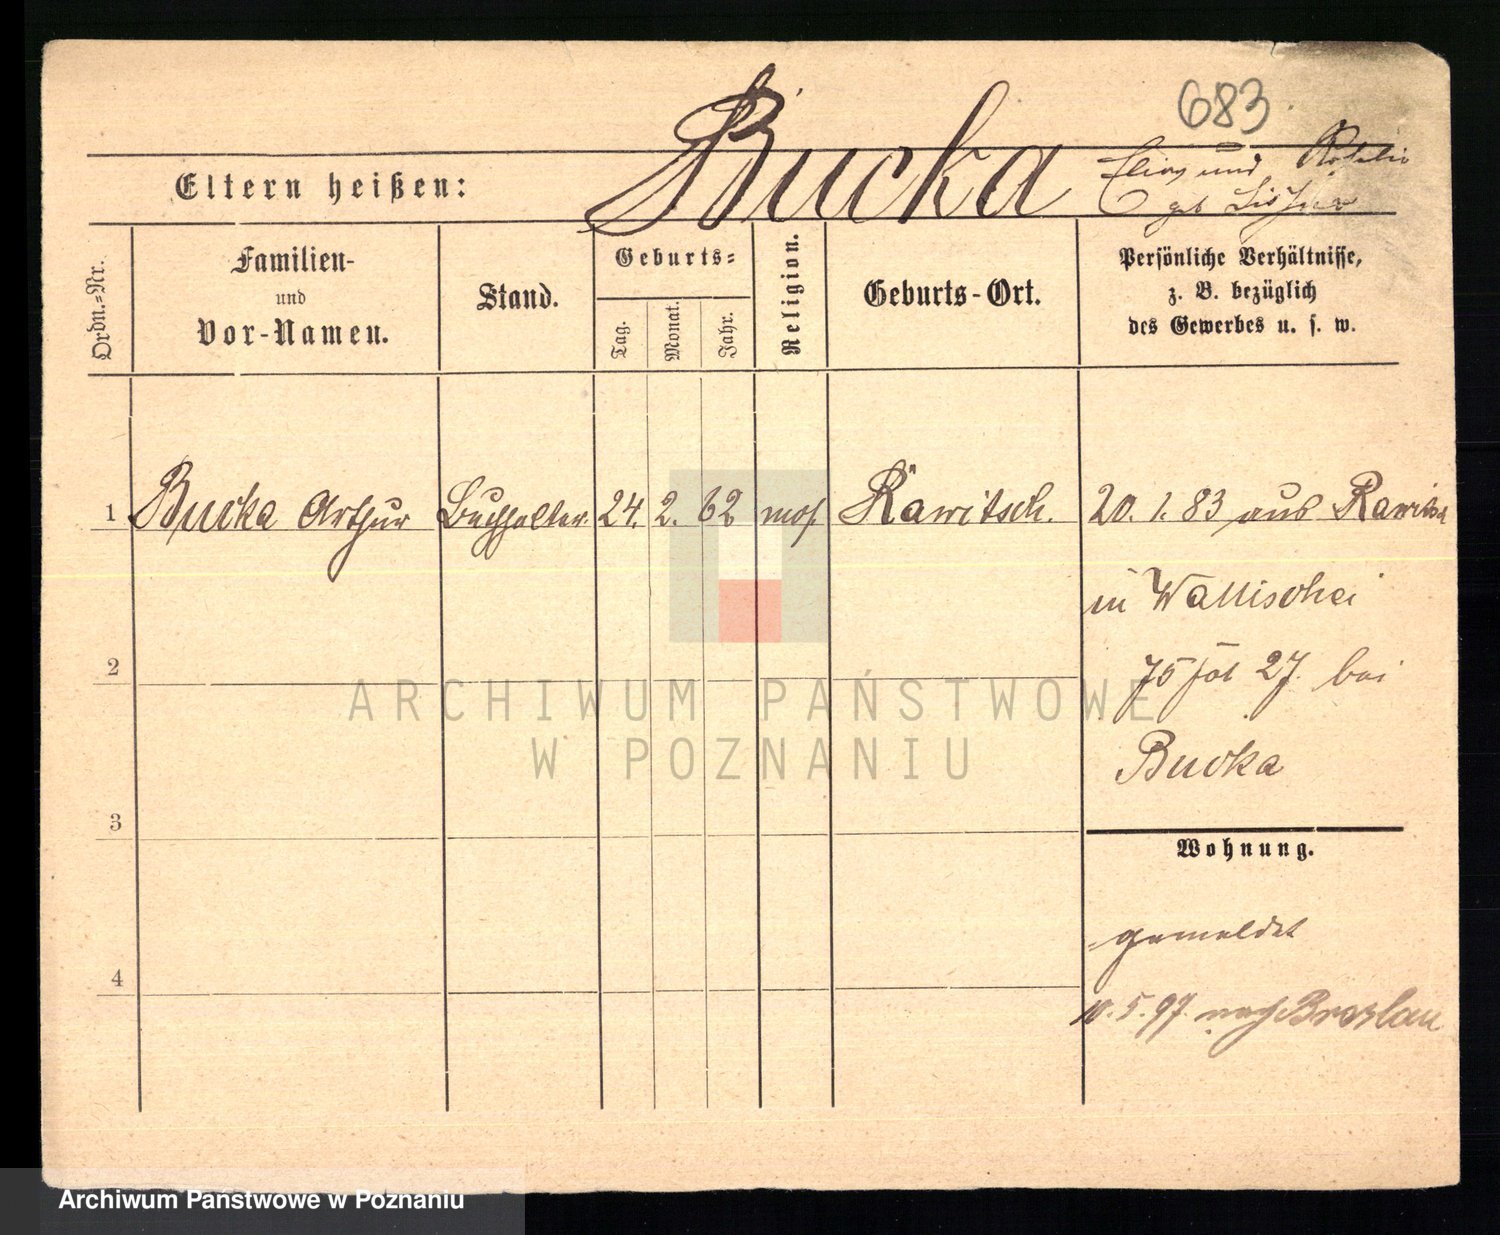 683
Bucka
Elias und Rosalie
geb
Eltern heißen:
Ordn.=Nr.
Familien-
und
Vor-Namen.
Stand.
Geburts=
Tag.
Monat.
Jahr.
Religion.
Geburts-Ort.
Persönliche Verhältnisse,
z. B. bezüglich
des Gewerbes u. s. w.
1 Bucka Arthur Buchhalter 24. 2. 62 mos Rawitsch. 20. 1. 83 aus Rawitsch
in Wallischei
75 bei
2
Bucka
3
Wohnung.
gemeldet
4
10. 5. 97. nach Breslau
ARCHIWUM PAŃSTWOWE
W POZNANIU
Archiwum Państwowe w Poznaniu